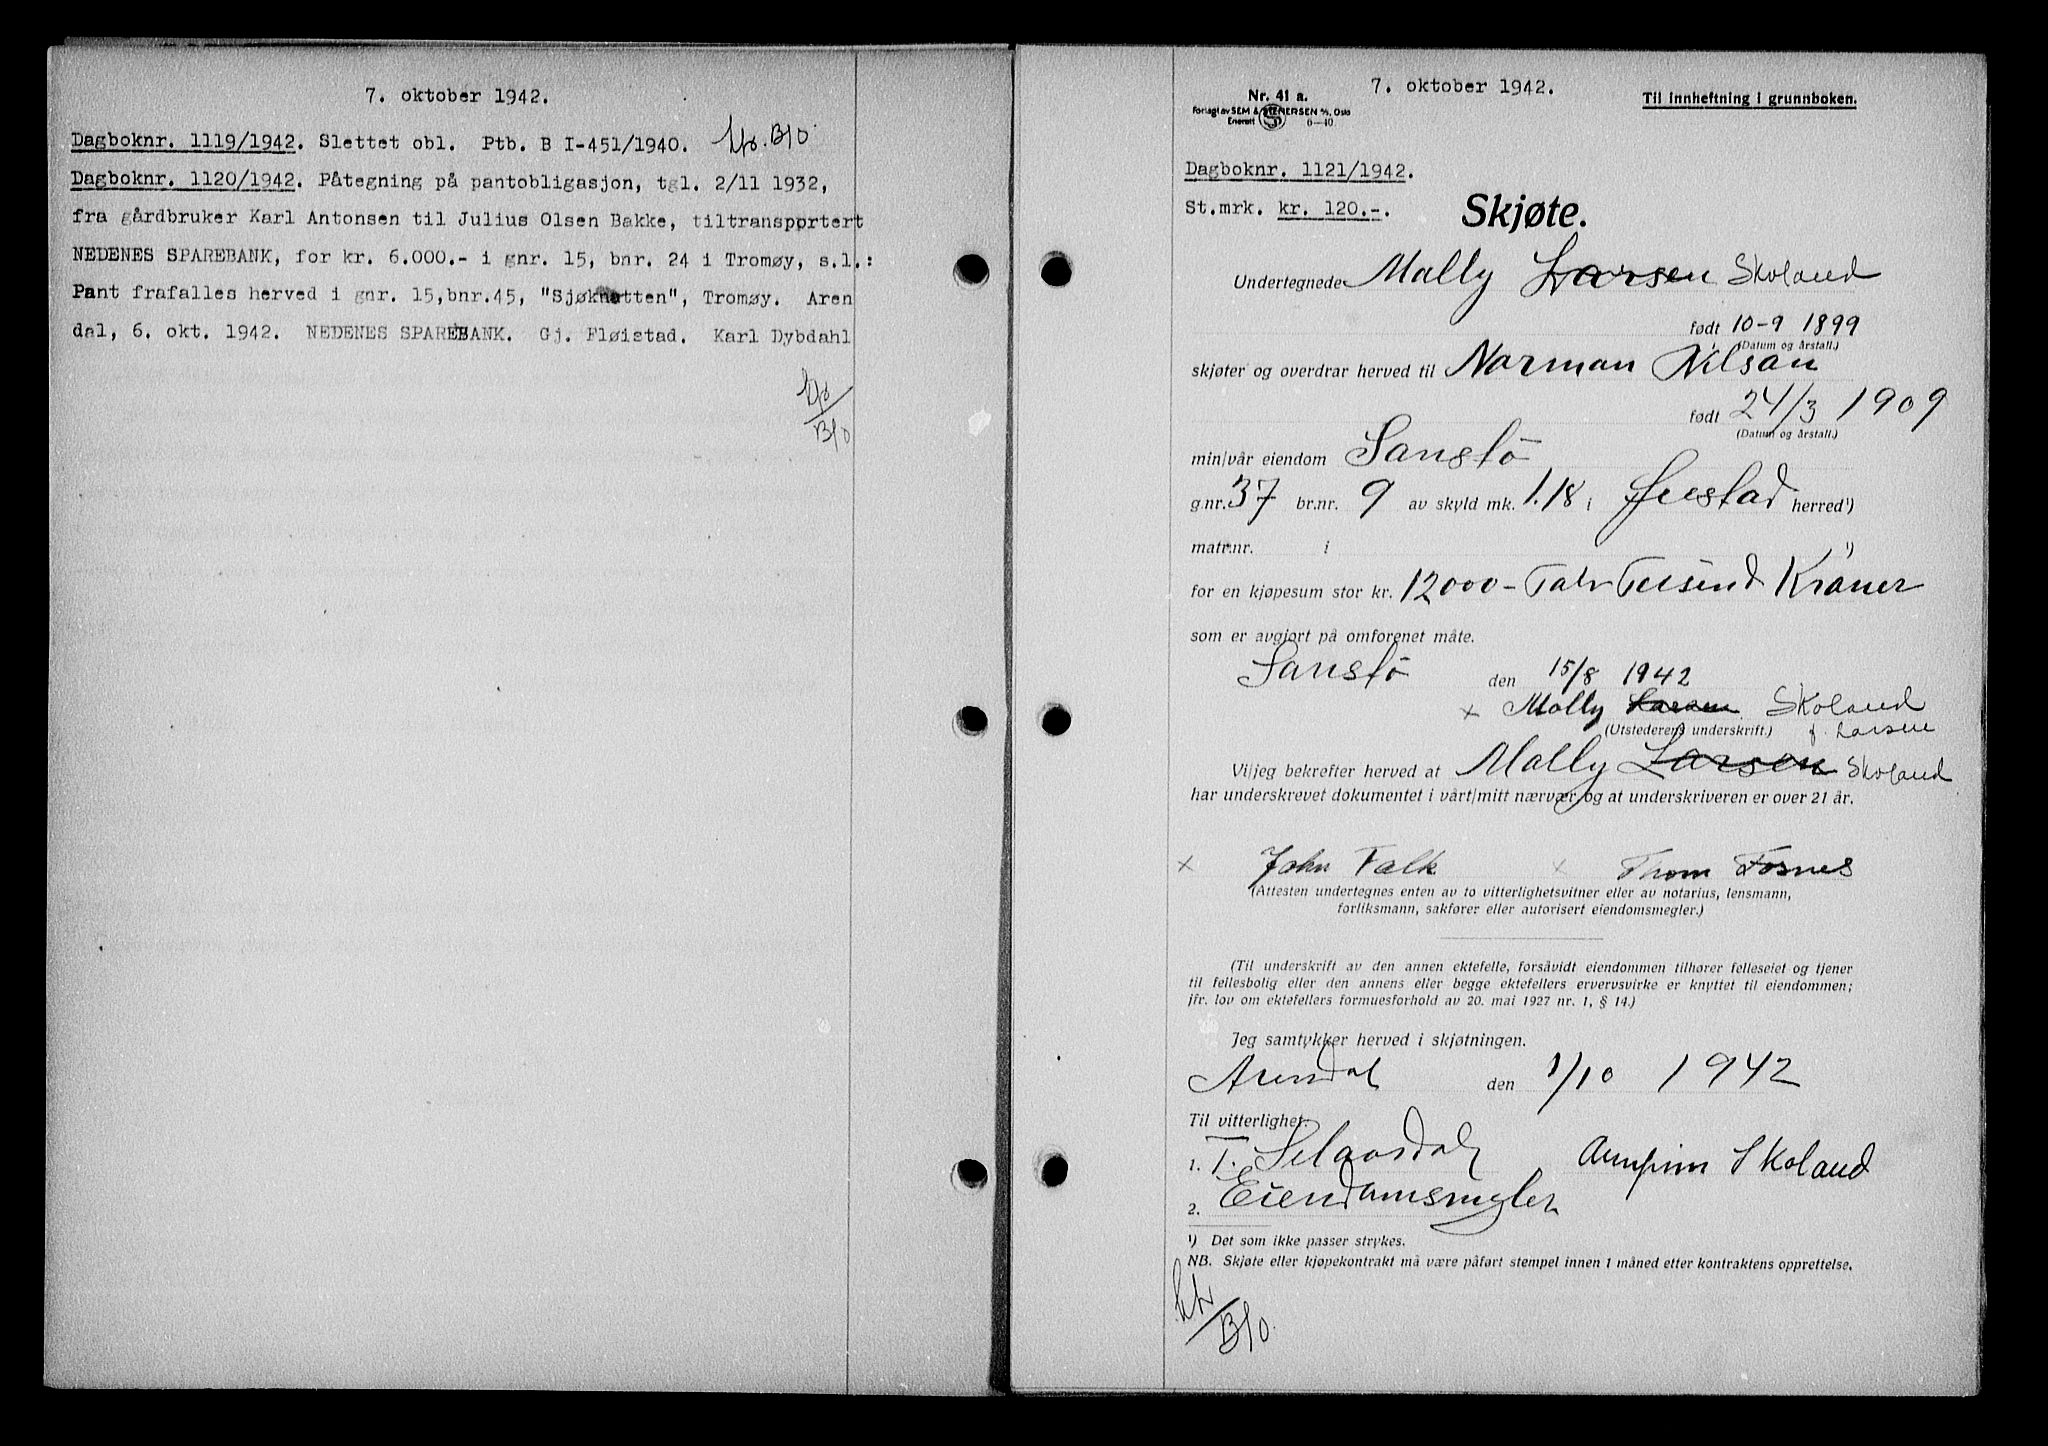 7. oktober 1942.
Dagboknr. 1119/1942. Slettet obl. Ptb. B I-451/1940.
Dagboknr. 1120/1942. Påtegning på pantobligasjon, tgl. 2/11 1932,
fra gårdbruker Karl Antonsen til Julius Olsen Bakke, tiltransportert
NEDENES SPAREBANK, for kr. 6.000.- i gnr. 15, bnr. 24 i Tromøy, s.l.:
Pant frafalles herved i gnr. 15,bnr.45, "Sjøknatten", Tromøy. Aren
dal, 6. okt. 1942. NEDENES SPAREBANK. Gj. Fløistad. Karl Dybdahl
7. oktober 1942.
Nr. 41 a.
Til innheftning i grunnboken.
Forlagt av SEM & STENERSEN A/S, Oslo
Enerett S 6-40.
Dagboknr. 1121/1942.
St.mrk. kr. 120.-.
Skjøte.
Undertegnede Mally Larsen Skoland
født 10-9 1899
(Datum og årstall.)
skjøter og overdrar herved til Norman Nilsen
født 24/3 1909
(Datum og årstall.)
min/vår eiendom Sanstø
g.nr. 37 br.nr. 9 av skyld mk. 1.18 i Øiestad herred¹)
matr.nr. i ¹)
for en kjøpesum stor kr. 12000 - Tolv Tusend Kroner
som er avgjort på omforenet måte.
Sanstø den 15/8 1942
x Mally Larsen Skoland
(Utstederens underskrift.) f. Larsen
Vi/jeg bekrefter herved at Mally Larsen Skoland
har underskrevet dokumentet i vårt/mitt nærvær og at underskriveren er over 21 år.
x John Falk x Thom Fosnes
(Attesten undertegnes enten av to vitterlighetsvitner eller av notarius, lensmann,
forliksmann, sakfører eller autorisert eiendomsmegler.)
(Til underskrift av den annen ektefelle, forsåvidt eiendommen tilhører felleseiet og tjener
til fellesbolig eller den annens eller begge ektefellers ervervsvirke er knyttet til eiendommen;
jfr. lov om ektefellers formuesforhold av 20. mai 1927 nr. 1, § 14.)
Jeg samtykker herved i skjøtningen.
Arendal den 1/10 1942
Til vitterlighet:
1. T. Skoland
2. Eiendomsmegler
¹) Det som ikke passer strykes.
NB. Skjøte eller kjøpekontrakt må være påført stempel innen 1 måned etter kontraktens opprettelse.